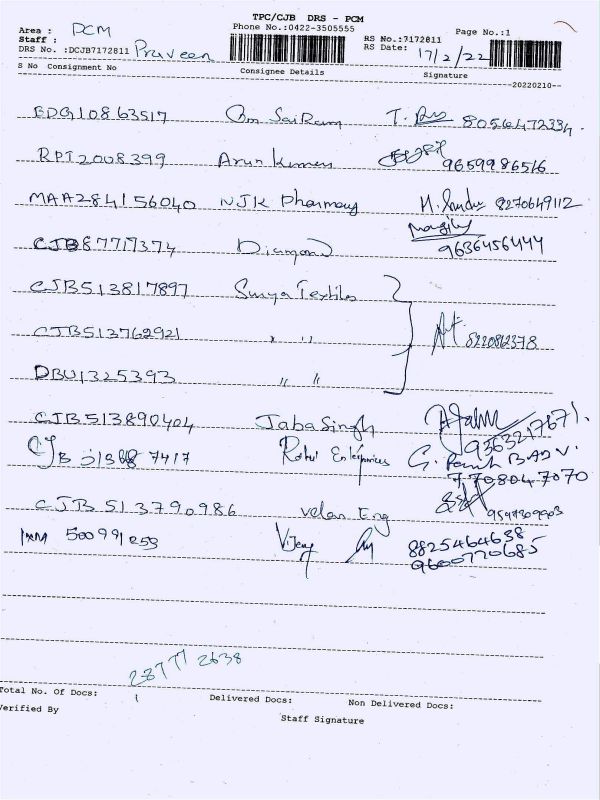 TPC/CJB DRS - PCM
Area : DCM Phone No.:0422-3505555 Page No.:1
Staff : Praveen RS No.:7172811
DRS No. :DCJB7172811 RS Date: 17/2/22
S No Consignment No Consignee Details Signature
--20220210--
EDG10863517 Om SaiRam 8056472334.
RPI2008399 Arun Kumar 9659986516
MAA284156040 NJK Pharmacy 8270649112
CJB87717374 Diamond 9636456444
CJB513817897 Surya Textiles
CJB513762921 " " 8220862378
DBU1325393 " "
CJB513890404 Jaba Singh 9363217671.
CJB 7417 Rahul Enterprices G. 7708047070
CJB 513790986 velan Eng
IXM 500991259 Vijay 8825464638
9600770685
28777 2638
Total No. Of Docs: Delivered Docs: Non Delivered Docs:
Verified By Staff Signature